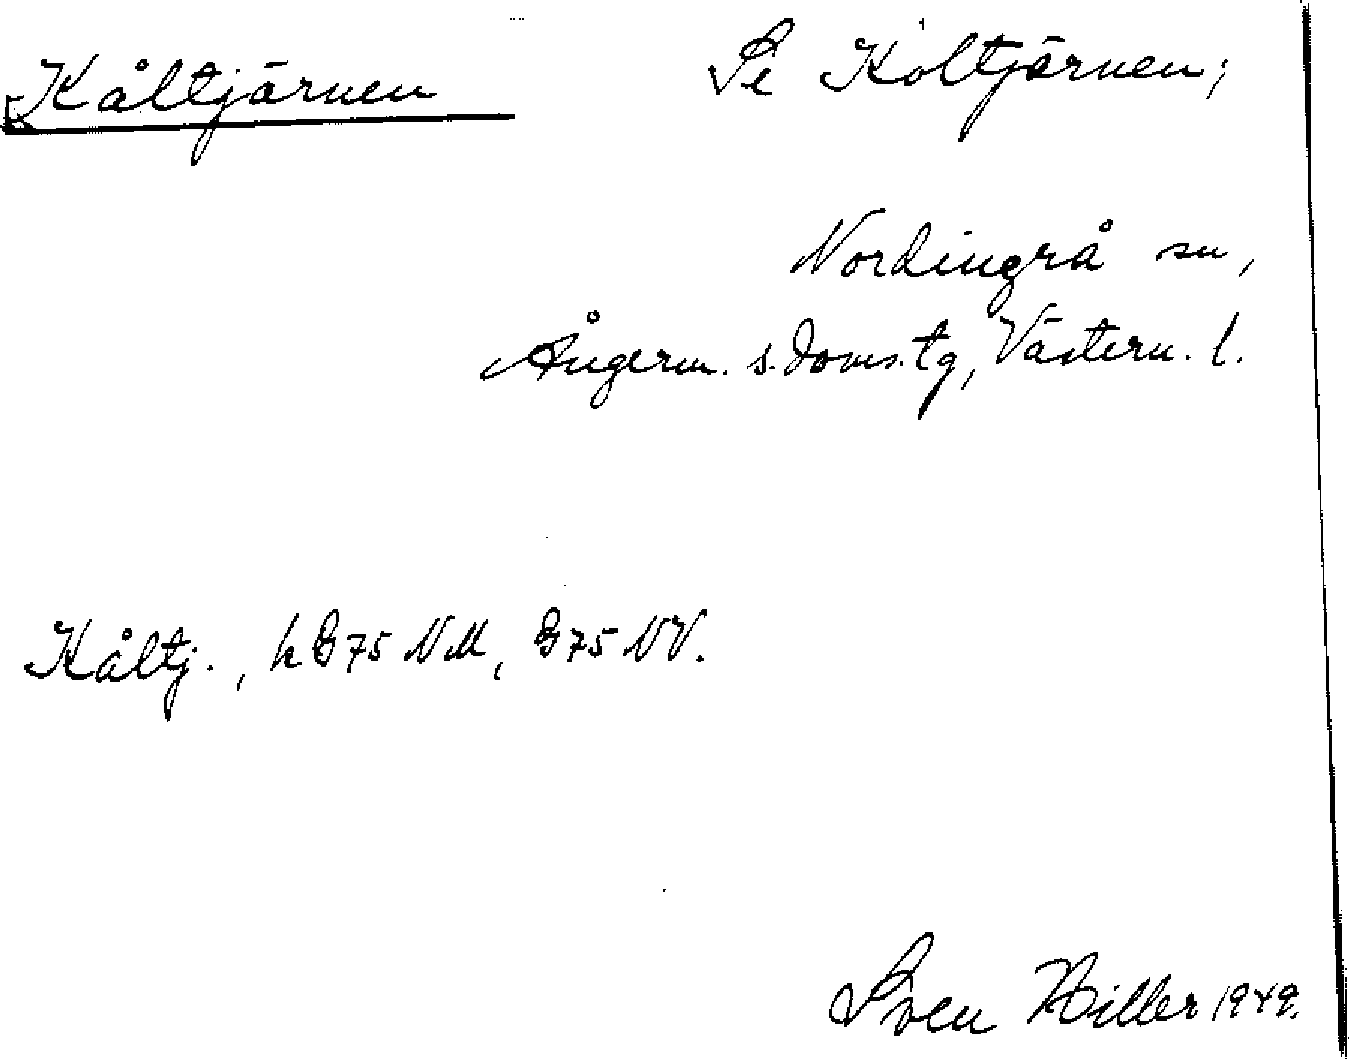 Kåltjärnen
Se Koltjärnen;
Nordingrå sn,
Ångerm. s. doms.tg, Västern. l.
Kåltj., h G75 NM, G75 NV.
Sven Hiller 1949.